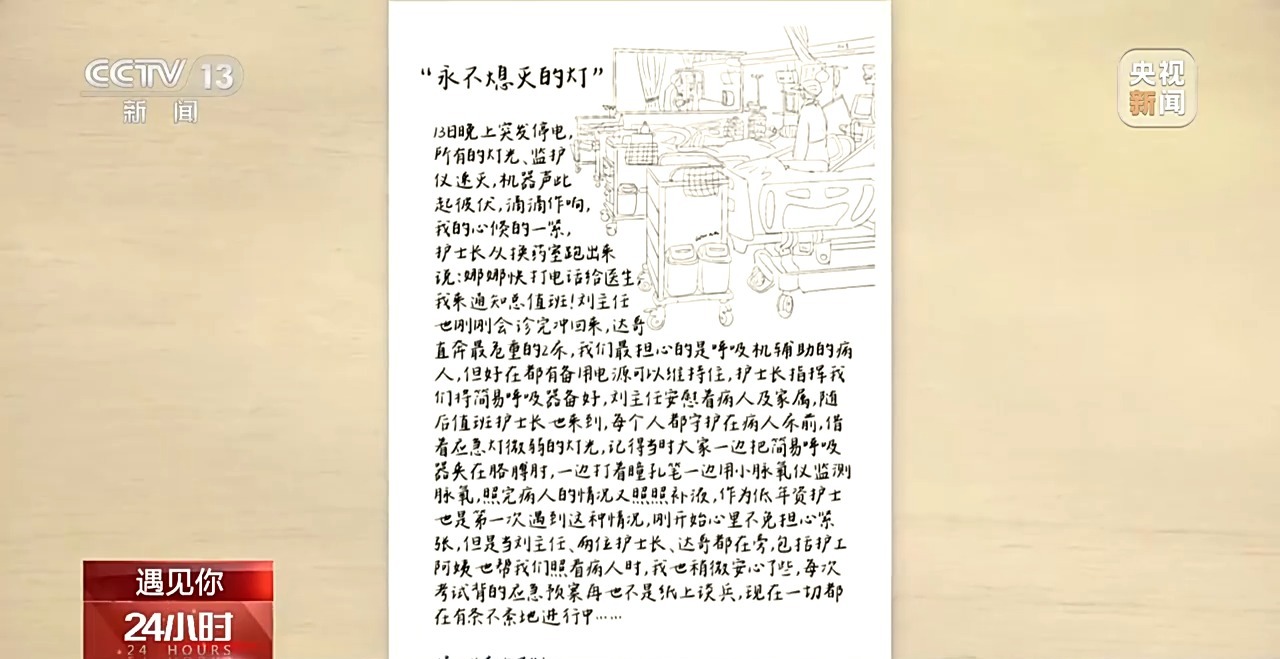 CCTV 13
新闻
央视
新闻
“永不熄灭的灯”
13日晚上突发停电,
所有的灯光、监护
仪速灭,机器声此
起彼伏,滴滴作响,
我的心倏的一紧,
护士长从换药室跑出来
说:娜娜快打电话给医生,
我来通知总值班!刘主任
也刚刚会诊完冲回来,达哥
直奔最危重的2床,我们最担心的是呼吸机辅助的病
人,但好在都有备用电源可以维持住,护士长指挥我
们将简易呼吸器备好,刘主任安慰着病人及家属,随
后值班护士长也来到,每个人都守护在病人床前,借
着应急灯微弱的灯光,记得当时大家一边把简易呼吸
器夹在胳膊肘,一边打着瞳孔笔一边用小脉氧仪监测
脉氧,照完病人的情况又照照补液,作为低年资护士
也是第一次遇到这种情况,刚开始心里不免担心紧
张,但是当刘主任、两位护士长、达哥都在旁,包括护工
阿姨也帮我们照看病人时,我也稍微安心了些,每次
考试背的应急预案再也不是纸上谈兵,现在一切都
在有条不紊地进行中……
遇见你
24小时
24 HOURS